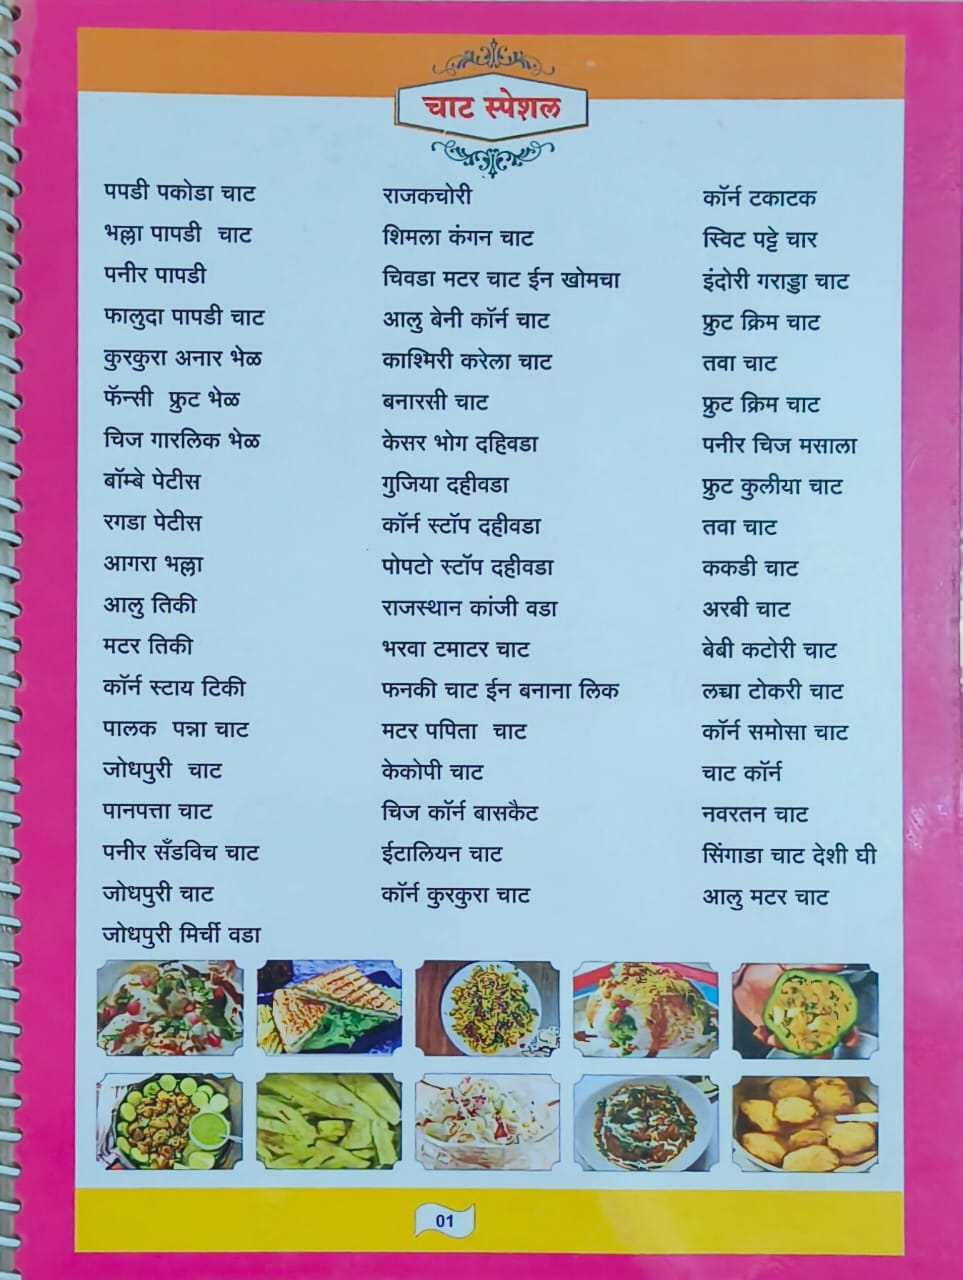 चाट स्पेशल
पपडी पकोडा चाट
भल्ला पापडी चाट
पनीर पापडी
फालुदा पापडी चाट
कुरकुरा अनार भेळ
फॅन्सी फ्रुट भेळ
चिज गारलिक भेळ
बॉम्बे पेटीस
रगडा पेटीस
आगरा भल्ला
आलु तिकी
मटर तिकी
कॉर्न स्टाय टिकी
पालक पन्ना चाट
जोधपुरी चाट
पानपत्ता चाट
पनीर सँडविच चाट
जोधपुरी चाट
जोधपुरी मिर्ची वडा
राजकचोरी
शिमला कंगन चाट
चिवडा मटर चाट ईन खोमचा
आलु बेनी कॉर्न चाट
काश्मिरी करेला चाट
बनारसी चाट
केसर भोग दहिवडा
गुजिया दहीवडा
कॉर्न स्टॉप दहीवडा
पोपटो स्टॉप दहीवडा
राजस्थान कांजी वडा
भरवा टमाटर चाट
फनकी चाट ईन बनाना लिक
मटर पपिता चाट
केकोपी चाट
चिज कॉर्न बासकैट
ईटालियन चाट
कॉर्न कुरकुरा चाट
कॉर्न टकाटक
स्विट पट्टे चार
इंदोरी गराड्डा चाट
फ्रुट क्रिम चाट
तवा चाट
फ्रुट क्रिम चाट
पनीर चिज मसाला
फ्रुट कुलीया चाट
तवा चाट
ककडी चाट
अरबी चाट
बेबी कटोरी चाट
लच्चा टोकरी चाट
कॉर्न समोसा चाट
चाट कॉर्न
नवरतन चाट
सिंगाडा चाट देशी घी
आलु मटर चाट
01